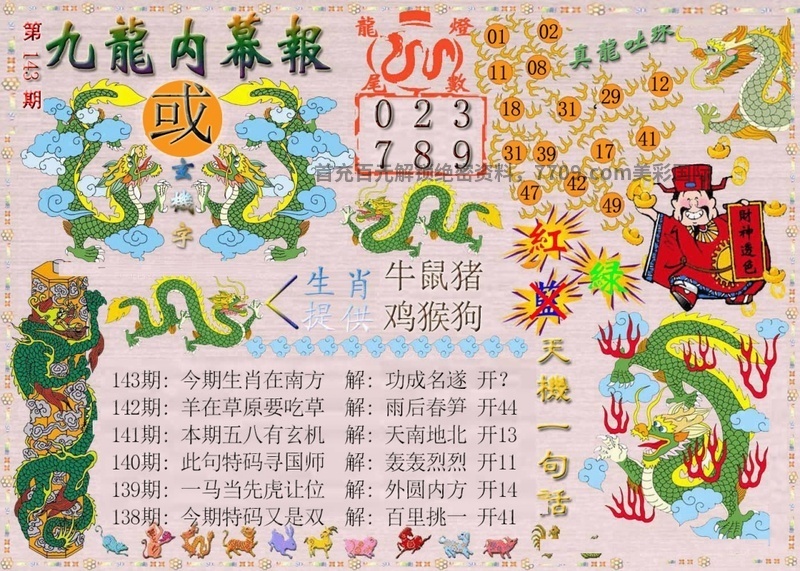 第143期
九龍内幕報
或
玄機字
龍燈
尾數
0 2 3
7 8 9
真龍吐珠
01 02
11 08
18 31 29 12
31 39 17 41
47 42 49
首充百元解锁绝密资料，7709.com美彩国际
紅
藍
緑
財神透色
生肖提供
牛鼠猪
鸡猴狗
天機一句話
143期：今期生肖在南方 解：功成名遂 开?
142期：羊在草原要吃草 解：雨后春笋 开44
141期：本期五八有玄机 解：天南地北 开13
140期：此句特码寻国师 解：轰轰烈烈 开11
139期：一马当先虎让位 解：外圆内方 开14
138期：今期特码又是双 解：百里挑一 开41